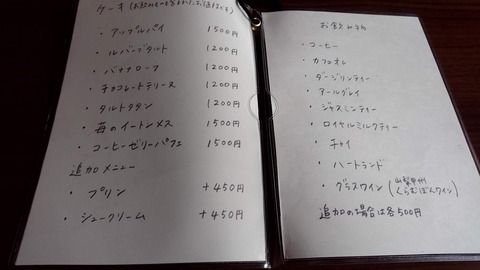 ケーキ(お飲みものを含まれたお値段です)
・アップルパイ 1500円
・ルバーブタルト 1200円
・バナナローフ 1200円
・チョコレートテリーヌ 1200円
・タルトタタン 1200円
・苺のイートンメス 1500円
・コーヒーゼリーパフェ 1500円
追加メニュー
・プリン +450円
・シュークリーム +450円
お飲み物
・コーヒー
・カフェオレ
・ダージリンティー
・アールグレイ
・ジャスミンティー
・ロイヤルミルクティー
・チャイ
・ハートランド
・グラスワイン(山梨甲州 くらむぼんワイン)
追加の場合は各500円